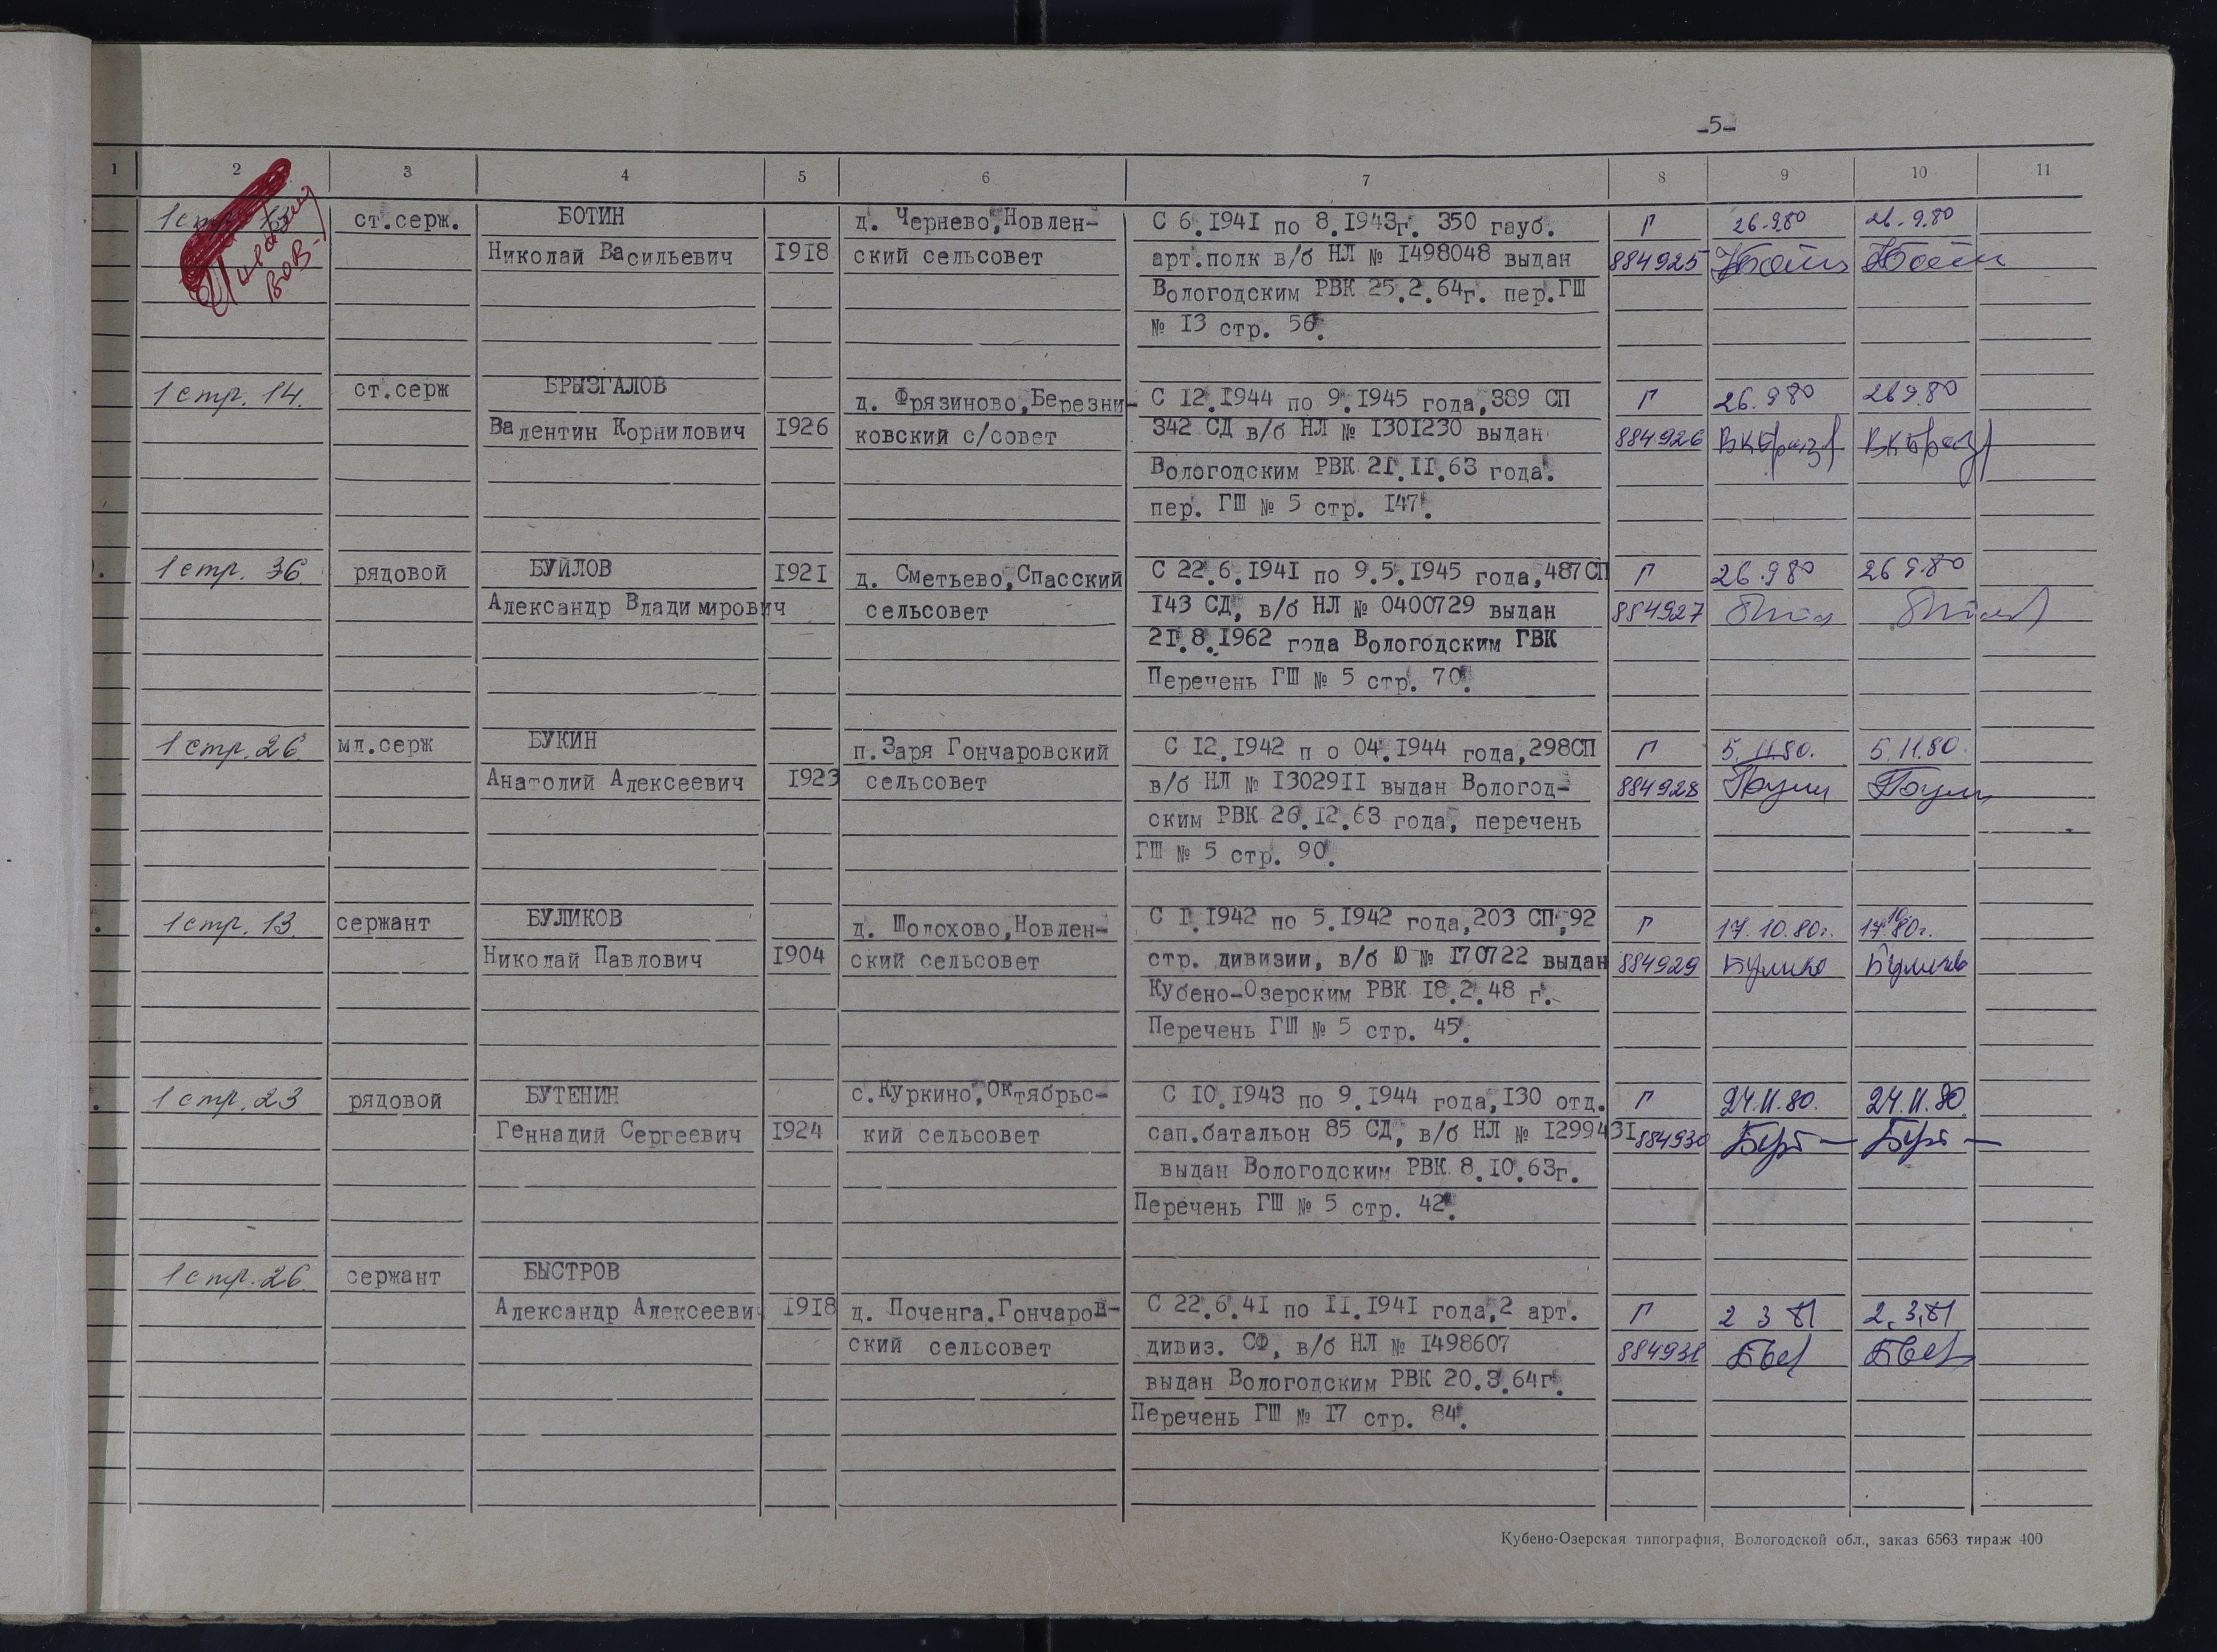 -5-
1 2 3 4 5 6 7 8 9 10 11
1 стр. 13 ст.серж. БОТИН д. Чернево, Новлен- С 6.1941 по 8.1943г. 350 гауб. Г 26.9.80 26.9.80
ВОВ Николай Васильевич 1918 ский сельсовет арт.полк в/б НЛ № 1498048 выдан 884925
Вологодским РВК 25.2.64г. пер.ГШ
№ 13 стр. 56.
1 стр. 14. ст.серж БРЫЗГАЛОВ д. Фрязиново, Березни- С 12.1944 по 9.1945 года, 389 СП Г 26.9.80 26.9.80
Валентин Корнилович 1926 ковский с/совет 342 СД в/б НЛ № 1301230 выдан 884926
Вологодским РВК 21.11.63 года.
пер. ГШ № 5 стр. 147.
1 стр. 36 рядовой БУЙЛОВ 1921 д. Сметьево, Спасский С 22.6.1941 по 9.5.1945 года, 487 СП Г 26.9.80 26.9.80
Александр Владимирович сельсовет 143 СД, в/б НЛ № 0400729 выдан 884927
21.8.1962 года Вологодским ГВК
Перечень ГШ № 5 стр. 70.
1 стр. 26. мл.серж БУКИН п.Заря Гончаровский С 12.1942 п о 04.1944 года, 298СП Г 5.11.80. 5.11.80.
Анатолий Алексеевич 1923 сельсовет в/б НЛ № 1302911 выдан Вологод- 884928
ским РВК 26.12.63 года, перечень
ГШ № 5 стр. 90.
1 стр. 13. сержант БУЛИКОВ д. Шолохово, Новлен- С 1.1942 по 5.1942 года, 203 СП, 92 Г 17.10.80г. 17.10.80г.
Николай Павлович 1904 ский сельсовет стр. дивизии, в/б Ю № 170722 выдан 884929
Кубено-Озерским РВК 18.2.48 г.
Перечень ГШ № 5 стр. 45.
1 стр. 23 рядовой БУТЕНИН с.Куркино, Октябрьс- С 10.1943 по 9.1944 года, 130 отд. Г 24.11.80. 24.11.80.
Геннадий Сергеевич 1924 кий сельсовет сап.батальон 85 СД, в/б НЛ № 1299431 884930
выдан Вологодским РВК 8.10.63г.
Перечень ГШ № 5 стр. 42.
1 стр. 26. сержант БЫСТРОВ
Александр Алексееви 1918 д. Поченга.Гончаров- С 22.6.41 по 11.1941 года, 2 арт. Г 2 3 81 2.3.81
ский сельсовет дивиз. СФ, в/б НЛ № 1498607 884931
выдан Вологодским РВК 20.3.64г.
Перечень ГШ № 17 стр. 84.
Кубено-Озерская типография, Вологодской обл., заказ 6563 тираж 400